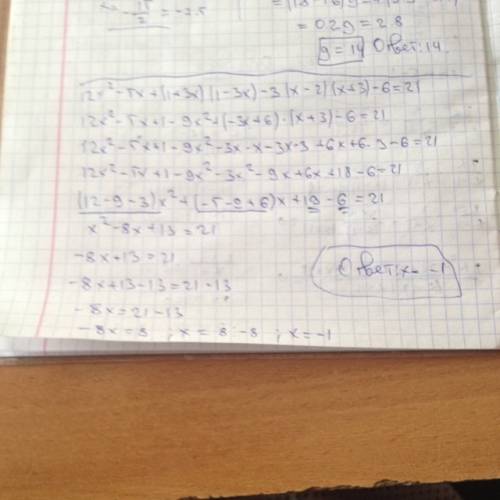 -15/2 = -7.5
= 0.2y = 2.8
y = 14 Ответ: 14.
12x²-5x+(1+3x)(1-3x)-3(x-2)(x+3)-6=21
12x²-5x+1-9x²+(-3x+6)·(x+3)-6=21
12x²-5x+1-9x²-3x·x-3x·3+6x+6·3-6=21
12x²-5x+1-9x²-3x²-9x+6x+18-6=21
(12-9-3)x²+(-5-9+6)x+19-6=21
x²-8x+13=21
-8x+13=21
Ответ: x=-1
-8x+13-13=21-13
-8x=21-13
-8x=8 ; x=8:-8 ; x=-1